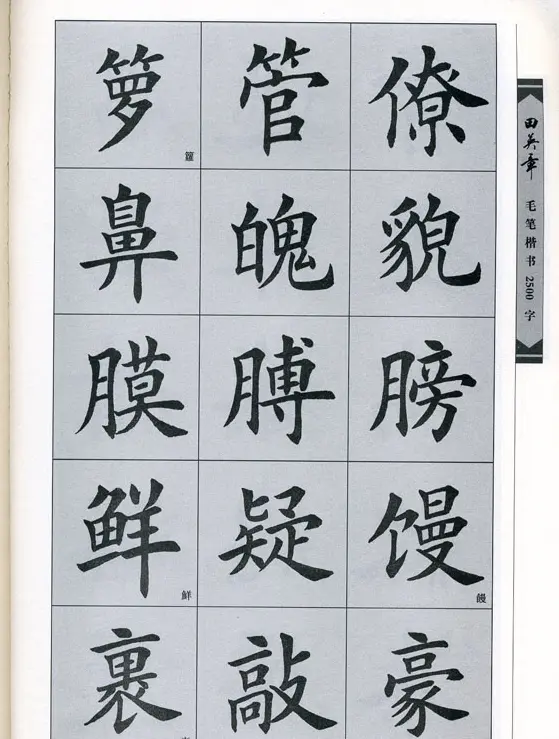 箩 管 僚
籮
鼻 魄 貌
膜 膊 膀
鲜 疑 馒
鮮 饅
裹 敲 豪
田英章 毛笔楷书 2500 字